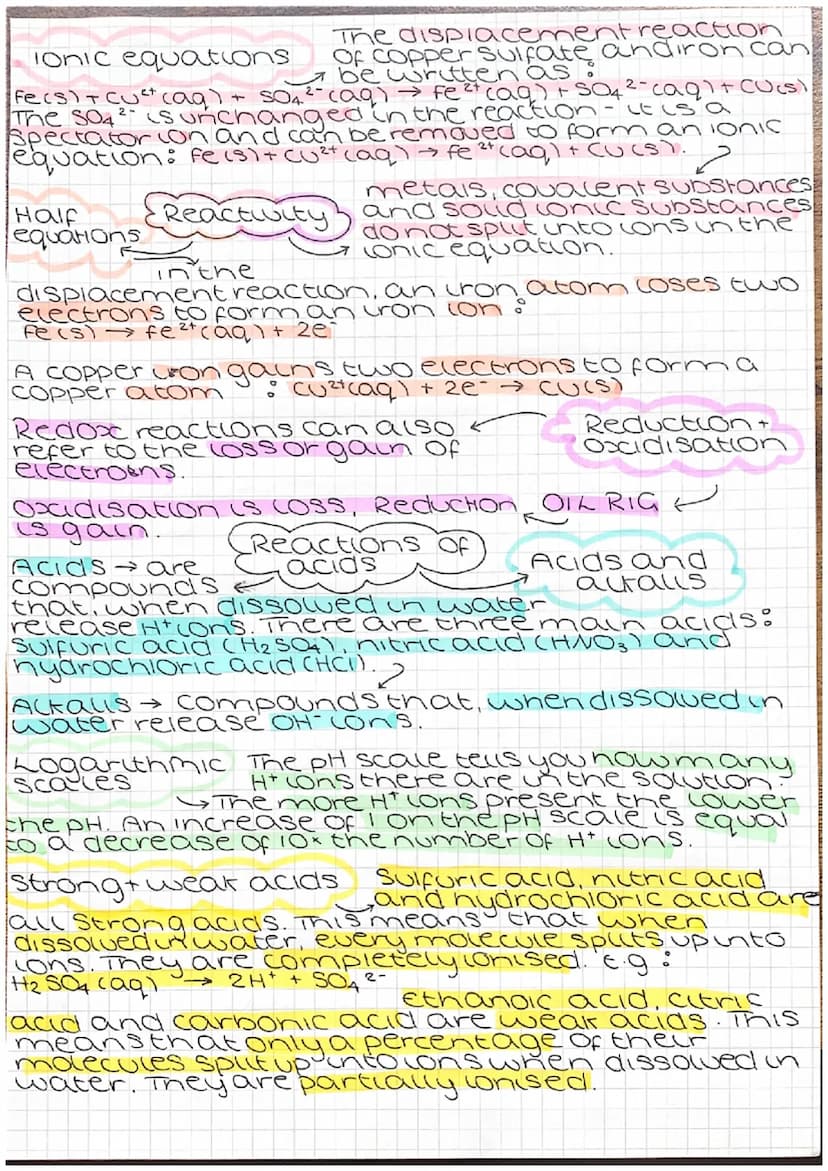 Ionic equations
The displacement reaction
of copper sulfate and iron can
be written as :
Fe(s) + Cu²⁺(aq) + SO₄²⁻(aq) → Fe²⁺(aq) + SO₄²⁻(aq) + Cu(s)
The SO₄²⁻ is unchanged in the reaction - it is a
spectator ion and can be removed to form an ionic
equation : Fe(s) + Cu²⁺(aq) → Fe²⁺(aq) + Cu(s).
metals, covalent substances
and solid ionic substances
do not split into ions in the
ionic equation.
Reactivity
Half
equations
in the
displacement reaction, an iron atom loses two
electrons to form an iron ion :
Fe(s) → Fe²⁺(aq) + 2e⁻
A copper iron gains two electrons to form a
copper atom : Cu²⁺(aq) + 2e⁻ → Cu(s)
Reduction +
oxidisation
Redox reactions can also
refer to the loss or gain of
electrons.
Oxidisation is loss, Reduction OIL RIG
is gain.
Reactions of
acids
Acids and
alkalis
Acids → are
compounds
that, when dissolved in water
release H⁺ ions. There are three main acids :
sulfuric acid (H₂SO₄), nitric acid (HNO₃) and
hydrochloric acid (HCl).
Alkalis → compounds that, when dissolved in
water release OH⁻ ions.
Logarithmic
scales
The pH scale tells you how many
H⁺ ions there are in the solution.
↳ The more H⁺ ions present the lower
the pH. An increase of 1 on the pH scale is equal
to a decrease of 10× the number of H⁺ ions.
Strong + weak acids
Sulfuric acid, nitric acid
and hydrochloric acid are
all strong acids. This means that when
dissolved in water, every molecule splits up into
ions. They are completely ionised. E.g :
H₂SO₄(aq) → 2H⁺ + SO₄²⁻
ethanoic acid, citric
acid and carbonic acid are weak acids. This
means that only a percentage of their
molecules split up into ions when dissolved in
water. They are partially ionised.